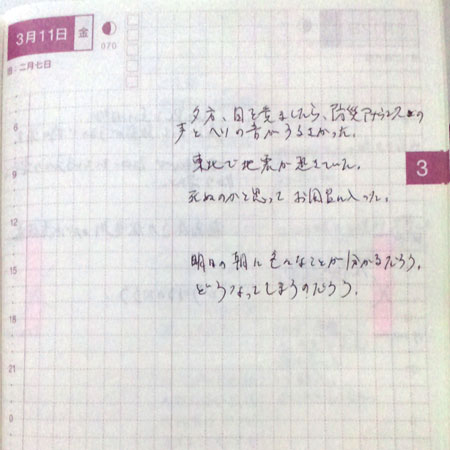 3月11日 金
070
旧:二月七日
夕方、目を覚ましたら、防災アナウンスの
声とヘリの音がうるさかった。
東北で地震が起きていた。
死ぬのかと思って お風呂に入った。
明日の朝に色々なことが分かるだろう。
どうなってしまうのだろう。
3
6
9
12
15
18
21
0